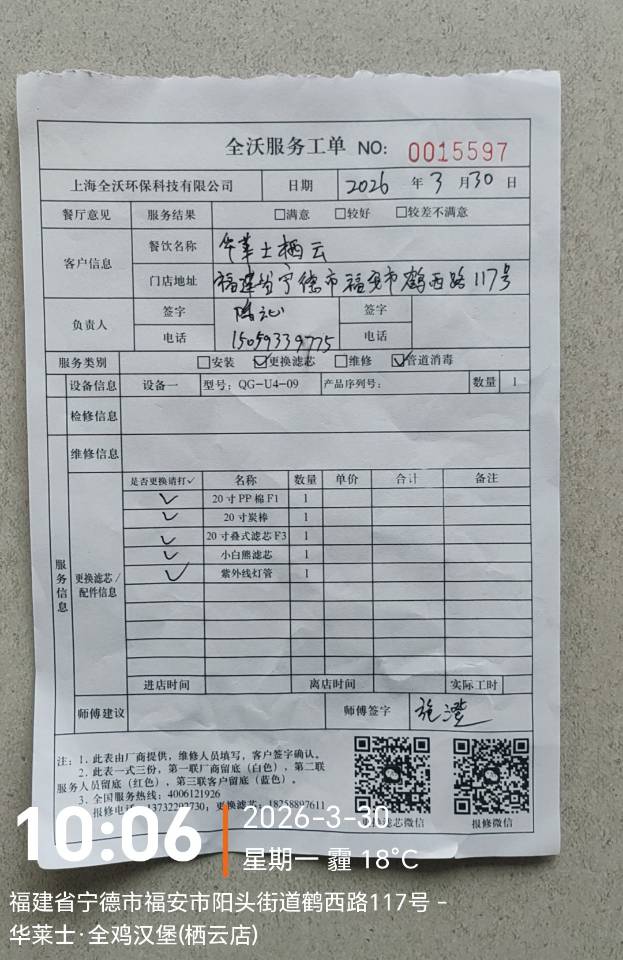 全沃服务工单 NO: 0015597
上海全沃环保科技有限公司 日期 2026 年 3 月 30 日
餐厅意见 服务结果 □满意 □较好 □较差不满意
客户信息 餐饮名称 华莱士栖云
门店地址 福建省宁德市福安市鹤西路117号
负责人 签字 签字
电话 15059339775 电话
服务类别 □安装 ☑更换滤芯 □维修 ☑管道消毒
设备信息 设备一 型号: QG-U4-09 产品序列号: 数量 1
检修信息
维修信息
服务信息
更换滤芯/配件信息
是否更换请打✓ 名称 数量 单价 合计 备注
✓ 20寸PP棉F1 1
✓ 20寸炭棒 1
✓ 20寸叠式滤芯F3 1
✓ 小白熊滤芯 1
✓ 紫外线灯管 1
进店时间 离店时间 实际工时
师傅建议 师傅签字 施澄
注: 1. 此表由厂商提供，维修人员填写，客户签字确认。
2. 此表一式三份，第一联厂商留底（白色），第二联
服务人员留底（红色），第三联客户留底（蓝色）。
3. 全国服务热线: 4006121926
报修电话 更换滤芯: 18258897611
滤芯微信 报修微信
10:06
2026-3-30
星期一 霾 18℃
福建省宁德市福安市阳头街道鹤西路117号 -
华莱士·全鸡汉堡(栖云店)